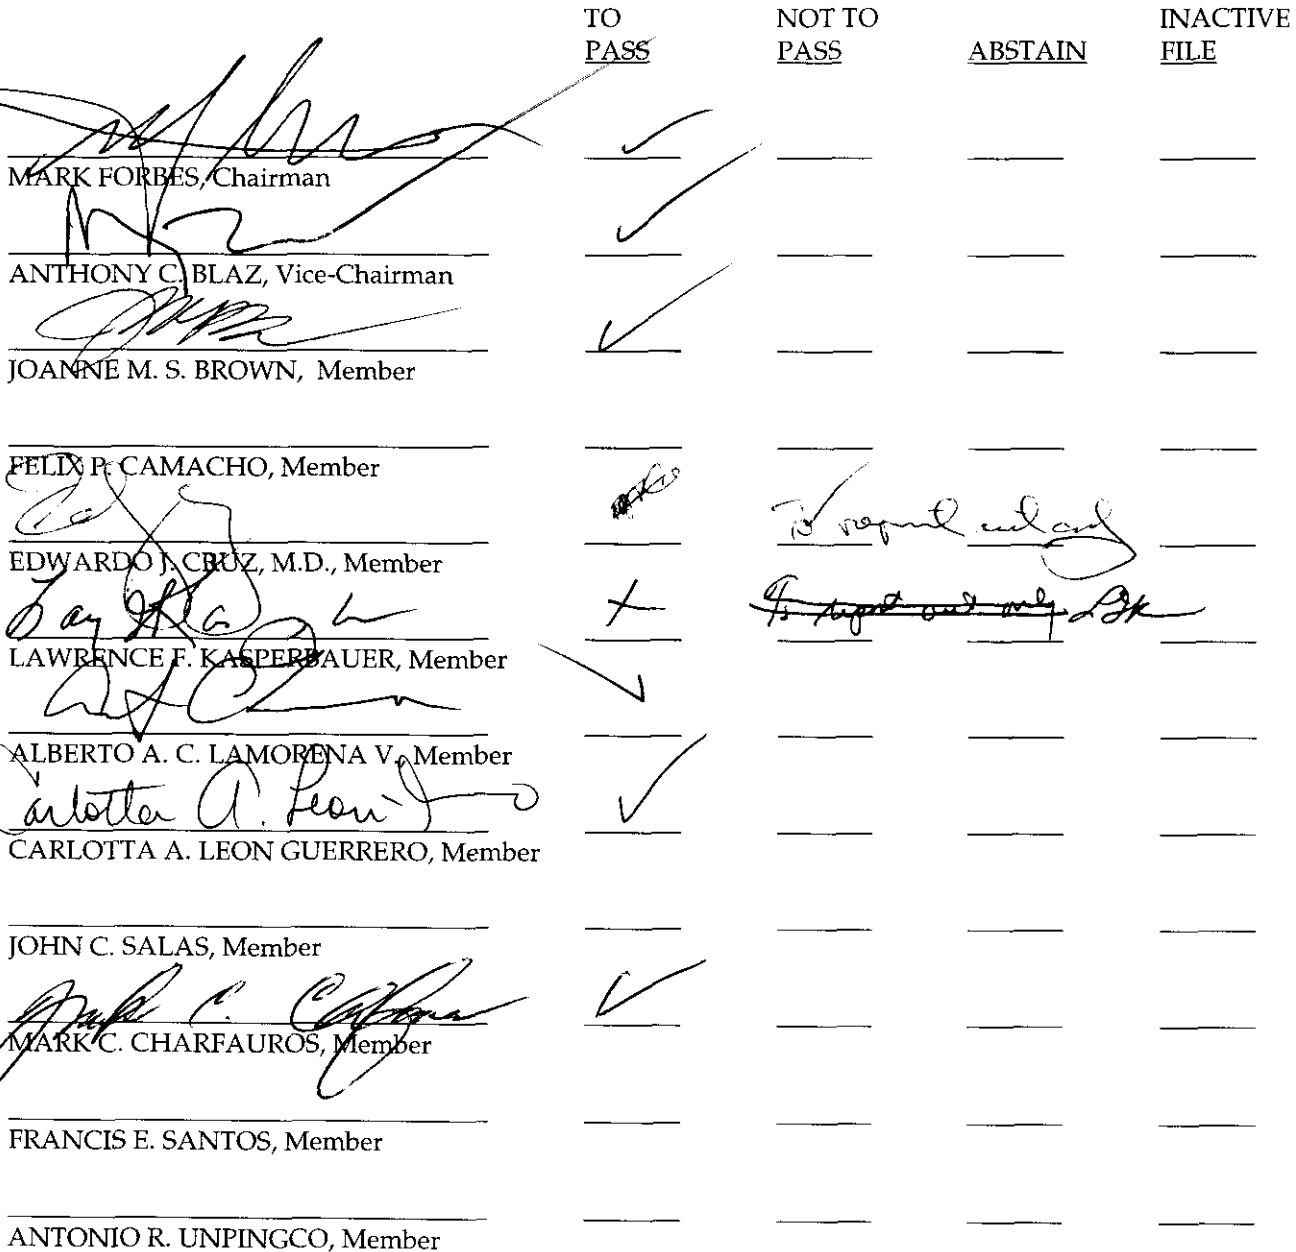 TO NOT TO INACTIVE
PASS PASS ABSTAIN FILE
MARK FORBES, Chairman
ANTHONY C. BLAZ, Vice-Chairman
JOANNE M. S. BROWN, Member
FELIX P. CAMACHO, Member
To report out only
EDWARDO J. CRUZ, M.D., Member
To report out only
LAWRENCE F. KASPERBAUER, Member
ALBERTO A. C. LAMORENA V., Member
Carlotta A. Leon
CARLOTTA A. LEON GUERRERO, Member
JOHN C. SALAS, Member
MARK C. CHARFAUROS, Member
FRANCIS E. SANTOS, Member
ANTONIO R. UNPINGCO, Member